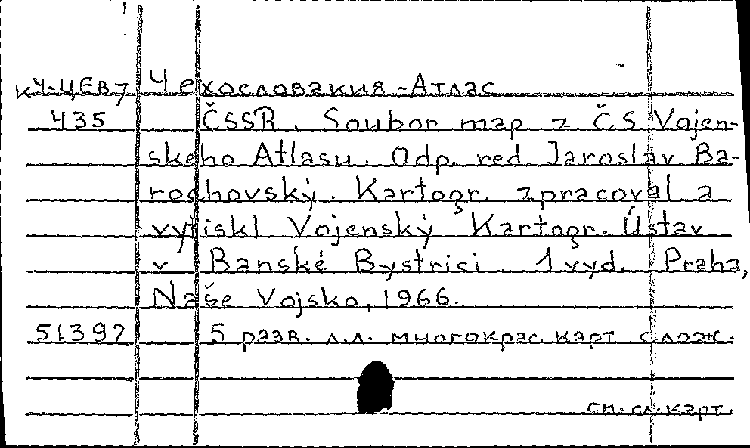 К4-ЦЕВ7 Чехословакия-Атлас
435 ČSSR. Soubor map z Č.S Vojen-
skeho Atlasu. Odp. red. Jaroslav Ba-
rochovský. Kartogr. zpracoval a
vytiskl Vojenský Kartogr. Ústav
v Banské Bystrici. 1 vyd. Praha,
Naše Vojsko, 1966.
51397 5 разв. л.л. многокрас. карт слож.
см. сл. карт.